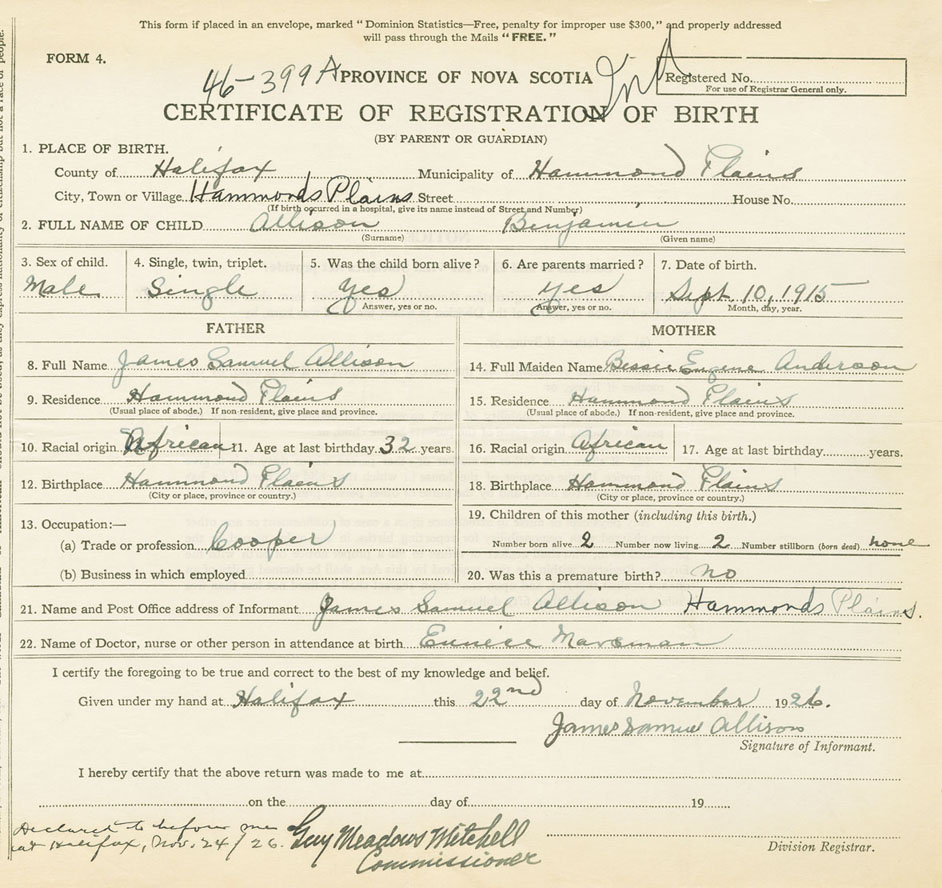 This form if placed in an envelope, marked "Dominion Statistics—Free, penalty for improper use $300," and properly addressed
will pass through the Mails "FREE."
FORM 4.
46-399A PROVINCE OF NOVA SCOTIA Registered No.
For use of Registrar General only.
CERTIFICATE OF REGISTRATION OF BIRTH
(BY PARENT OR GUARDIAN)
1. PLACE OF BIRTH.
County of Halifax Municipality of Hammond Plains
City, Town or Village Hammonds Plains Street House No.
(If birth occurred in a hospital, give its name instead of Street and Number)
2. FULL NAME OF CHILD Allison Benjamin
(Surname) (Given name)
3. Sex of child. 4. Single, twin, triplet. 5. Was the child born alive? 6. Are parents married? 7. Date of birth.
Male Single Yes Yes Sept. 10, 1915
Answer, yes or no. Answer, yes or no. Month, day, year.
FATHER MOTHER
8. Full Name James Samuel Allison 14. Full Maiden Name Bessie Eugene Anderson
9. Residence Hammond Plains 15. Residence Hammond Plains
(Usual place of abode.) If non-resident, give place and province. (Usual place of abode.) If non-resident, give place and province.
10. Racial origin African 11. Age at last birthday 32 years. 16. Racial origin African 17. Age at last birthday years.
12. Birthplace Hammond Plains 18. Birthplace Hammond Plains
(City or place, province or country.) (City or place, province or country.)
13. Occupation:— 19. Children of this mother (including this birth.)
(a) Trade or profession Cooper Number born alive 2 Number now living 2 Number stillborn (born dead) none
(b) Business in which employed 20. Was this a premature birth? no
21. Name and Post Office address of Informant James Samuel Allison Hammonds Plains.
22. Name of Doctor, nurse or other person in attendance at birth Eunice
I certify the foregoing to be true and correct to the best of my knowledge and belief.
Given under my hand at Halifax this 22nd day of November 1926.
James Samuel Allison
Signature of Informant.
I hereby certify that the above return was made to me at
on the day of 19
Declared to before me
at Halifax, Nov. 24/26. Guy Meadows Mitchell
Commissioner
Division Registrar.